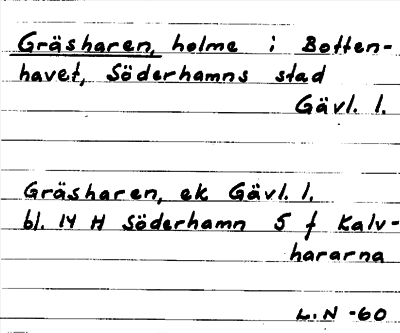 Gräsharen, holme i Botten-
havet, Söderhamns stad
Gävl. l.
Gräsharen, ek Gävl. l.
bl. 14 H Söderhamn 5 f Kalv-
hararna
L.N -60